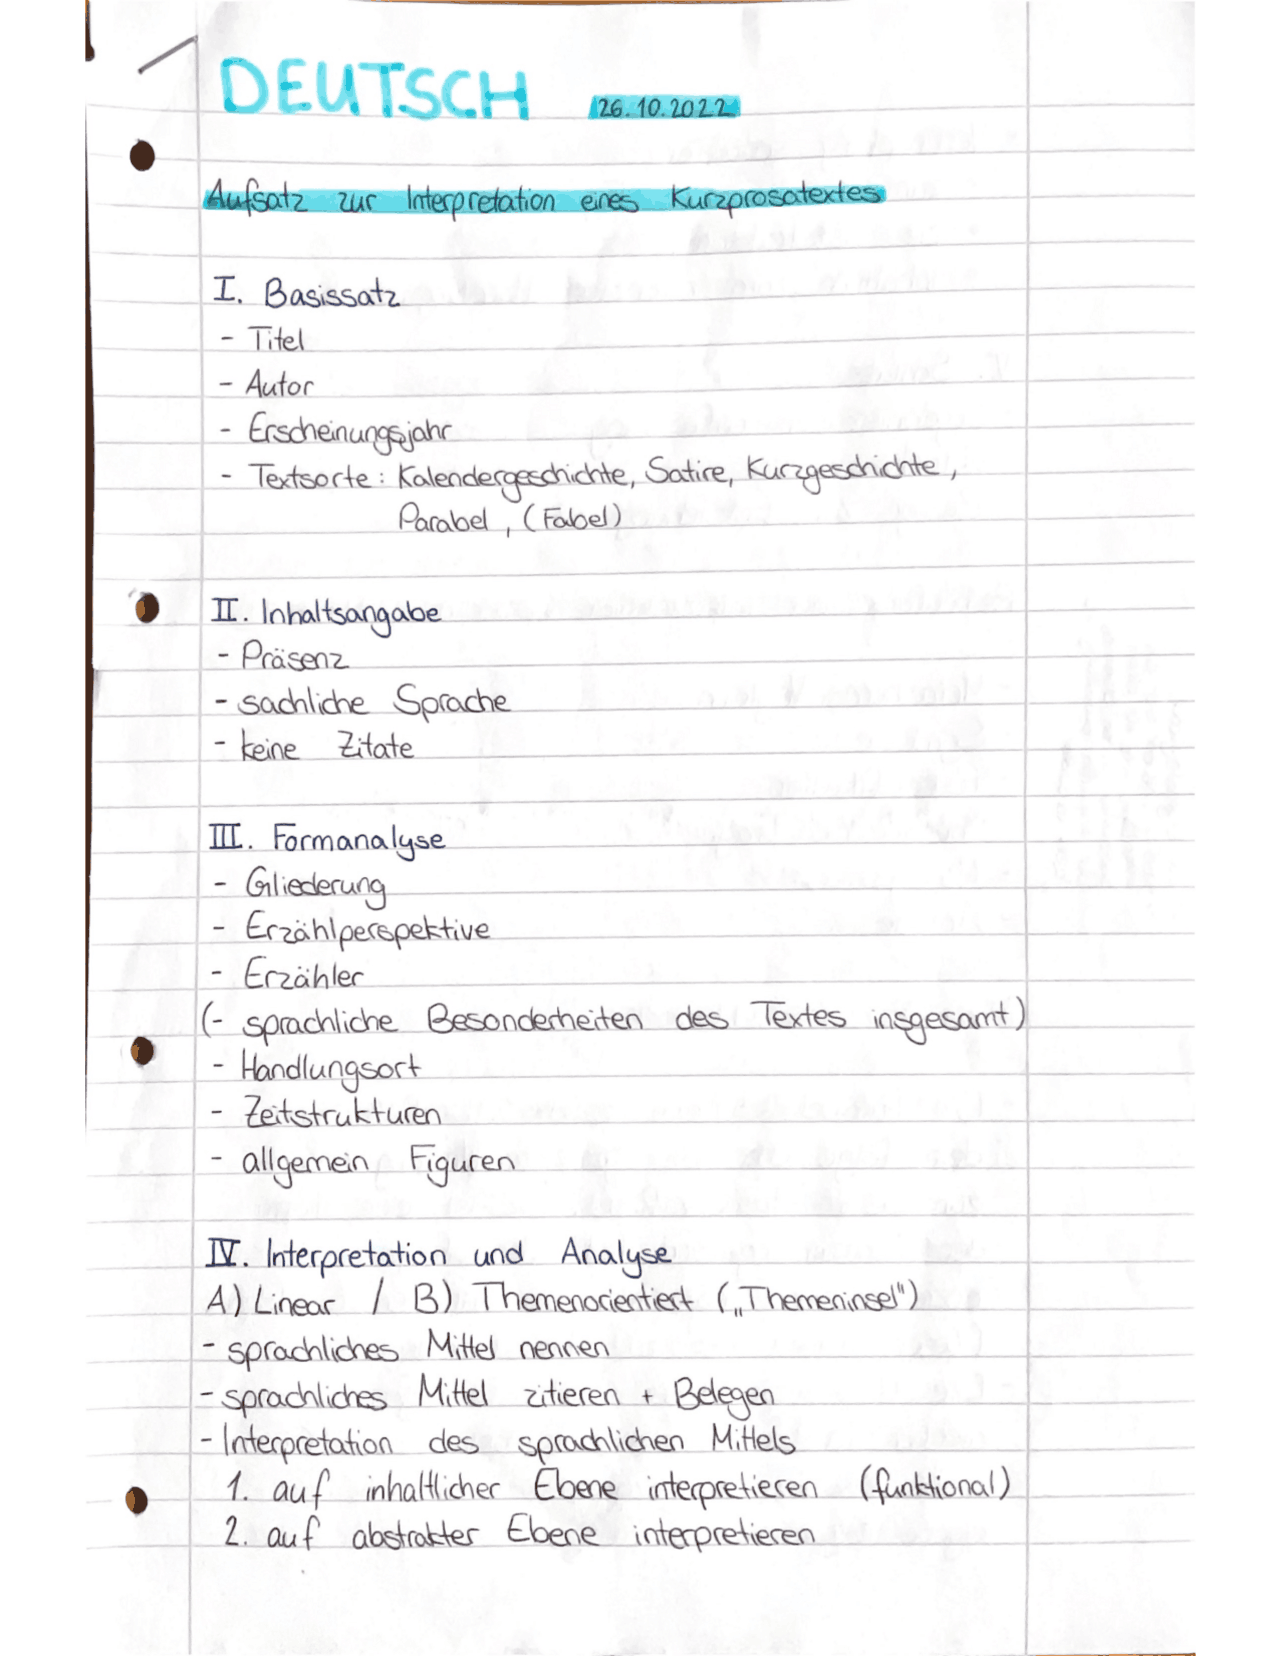 DEUTSCH 26.10.2022
Aufsatz zur Interpretation eines Kurzprosatextes
I. Basissatz
- Titel
- Autor
- Erscheinungsjahr
- Textsorte : Kalendergeschichte, Satire, Kurzgeschichte,
Parabel, (Fabel)
II. Inhaltsangabe
- Präsenz
- sachliche Sprache
- keine Zitate
III. Formanalyse
- Gliederung
- Erzählperspektive
- Erzähler
(- sprachliche Besonderheiten des Textes insgesamt)
- Handlungsort
- Zeitstrukturen
- allgemein Figuren
IV. Interpretation und Analyse
A) Linear / B) Themenorientiert („Themeninsel")
- sprachliches Mittel nennen
- sprachliches Mittel zitieren + Belegen
- Interpretation des sprachlichen Mittels
1. auf inhaltlicher Ebene interpretieren (funktional)
2. auf abstrakter Ebene interpretieren